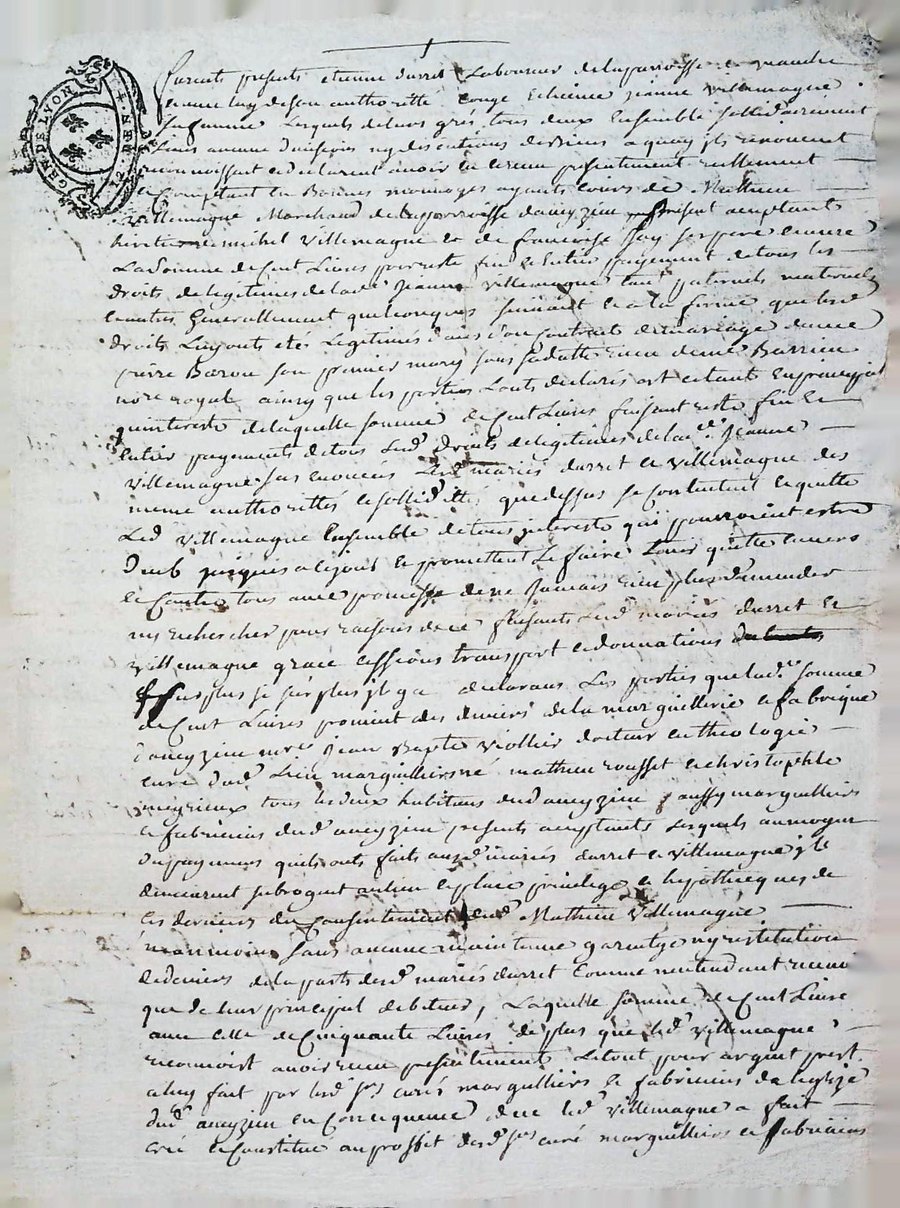 GEN DE LYON
furent presents etienne durret Laboureur de la parroisse de
femme luy de son authoritté conge Jeanne Villemagne
sa femme Lesquels de leurs grés tous deux Ensemble sollidairement
sans aucune division ny discutions de biens a quoy ils renoncent
reconnoissent et declarent avoir eu et receu presentement reellement
et Comptant En Bonnes monnoyes ayants Cours de Mathieu
Villemagne Marchand de la parroisse danyzieu present acceptant
heritier de michel Villemagne et de francoise son pere et mere
La Somme de Cent Livres pour reste fin et Entier payement de tous les
droits de legitimes de lade Jeanne Villemagne tant paternels maternels
et autres Generallement quelconques suivant et a la forme que lesd
droits Luy ont etés Legitimés dans son Contract de mariage avec
pierre Baron son premier mary sous sa datte receu de me Barrieu
nore royal ainsy que les parties Lonts declarés et estants En principal
qu'interests de laquelle somme de Cent Livres faisant reste fin et
Entier payements de tous Lesd droits de legitimes de lade Jeanne
Villemagne sus enoncés Lesd mariés durret et Villemagne des
meme authorittés et sollidittés que dessus se Contentent Et quitte
Led Villemagne Ensemble de tous interests qui pourroient estre
deub jusques a ce jour et promettent Le faire tenir quitte Envers
et Contre tous avec promesse de ne Jamais rien plus demander
ny rechercher pour raisons de ce faisants Lesd mariés durret et
Villemagne grace cessions transport et donnations
du plus si surplus il y a declarans Les parties que lade somme
de Cent Livres provient des deniers de la marguillerie et fabrique
danyzieu mre Jean Bapte Viollier docteur en theologie
curé dud Lieu marguilliers né mathieu rousset et christophle
meyrieux tous les deux habitans dud anyzieu aussy marguilliers
et fabriciens dud anyzieu presents acceptants Lesquels au moyen
du payement quils onts faits auxd mariés durret et Villemagne ils
demeurent subrogent au lieu et place privilege et hypothecques de
ces derniers du Consentement dud Mathieu Villemagne
neanmoins sans aucune maintenue garentye ny restitution
de deniers de la parts desd mariés durret Comme nentendant recevoir
que de leur principal debiteur, Laquelle somme de Cent Livres
avec Celle de Cinquante Livres de plus que led Villemagne
reconnoist avoir receu presentement Le tout pour argent prest
a luy fait par lesd srs curé marguilliers et fabriciens de leglize
dud anyzieu en Concequence de ce led Villemagne a fait
créé et Constitué au proffit desd srs curé marguilliers et fabriciens